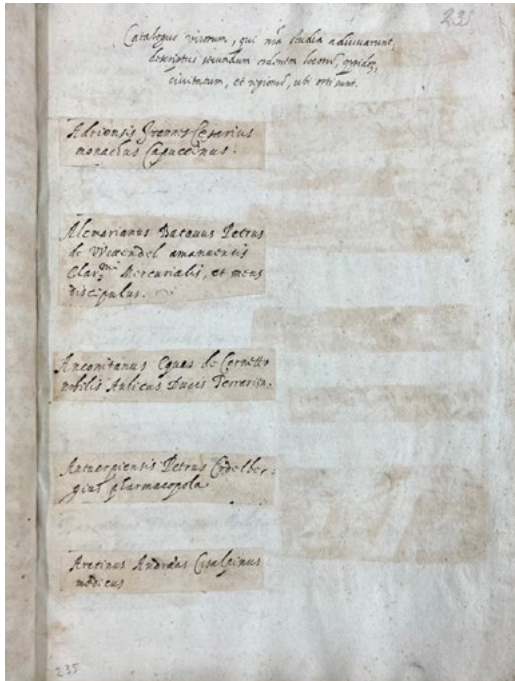 235
Catalogus virorum, qui mea studia adiuvarunt,
descriptus secundum ordinem locorum, oppidorum,
civitatum, et regionum, ubi orti sunt.
Adriensis Joannes Cesarius
monachus Capuccinus.
Alcmarianus Batavus Petrus
de amanuensis
Clar.mi Mercurialis, et meus
discipulus.
Anconitanus Eques de Cornetto
nobilis Aulicus Ducis Ferrariæ.
Antuerpiensis Petrus Codelber-
gius pharmacopola
Aretinus Andreas Cisalpinus
medicus
235